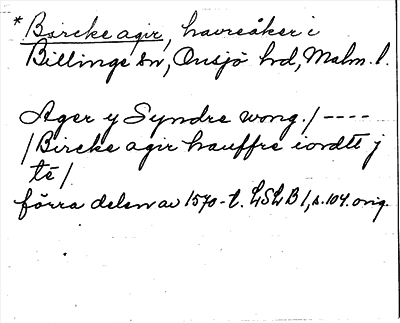 * Bircke agir, havreåker i
Billinge sn, Onsjö hd, Malm. l.
Ager y Syndre wong. / ----
/ Bircke agir hauffre iordtt j
té /
förra delen av 1570-t. LSLB 1, s. 104. orig.